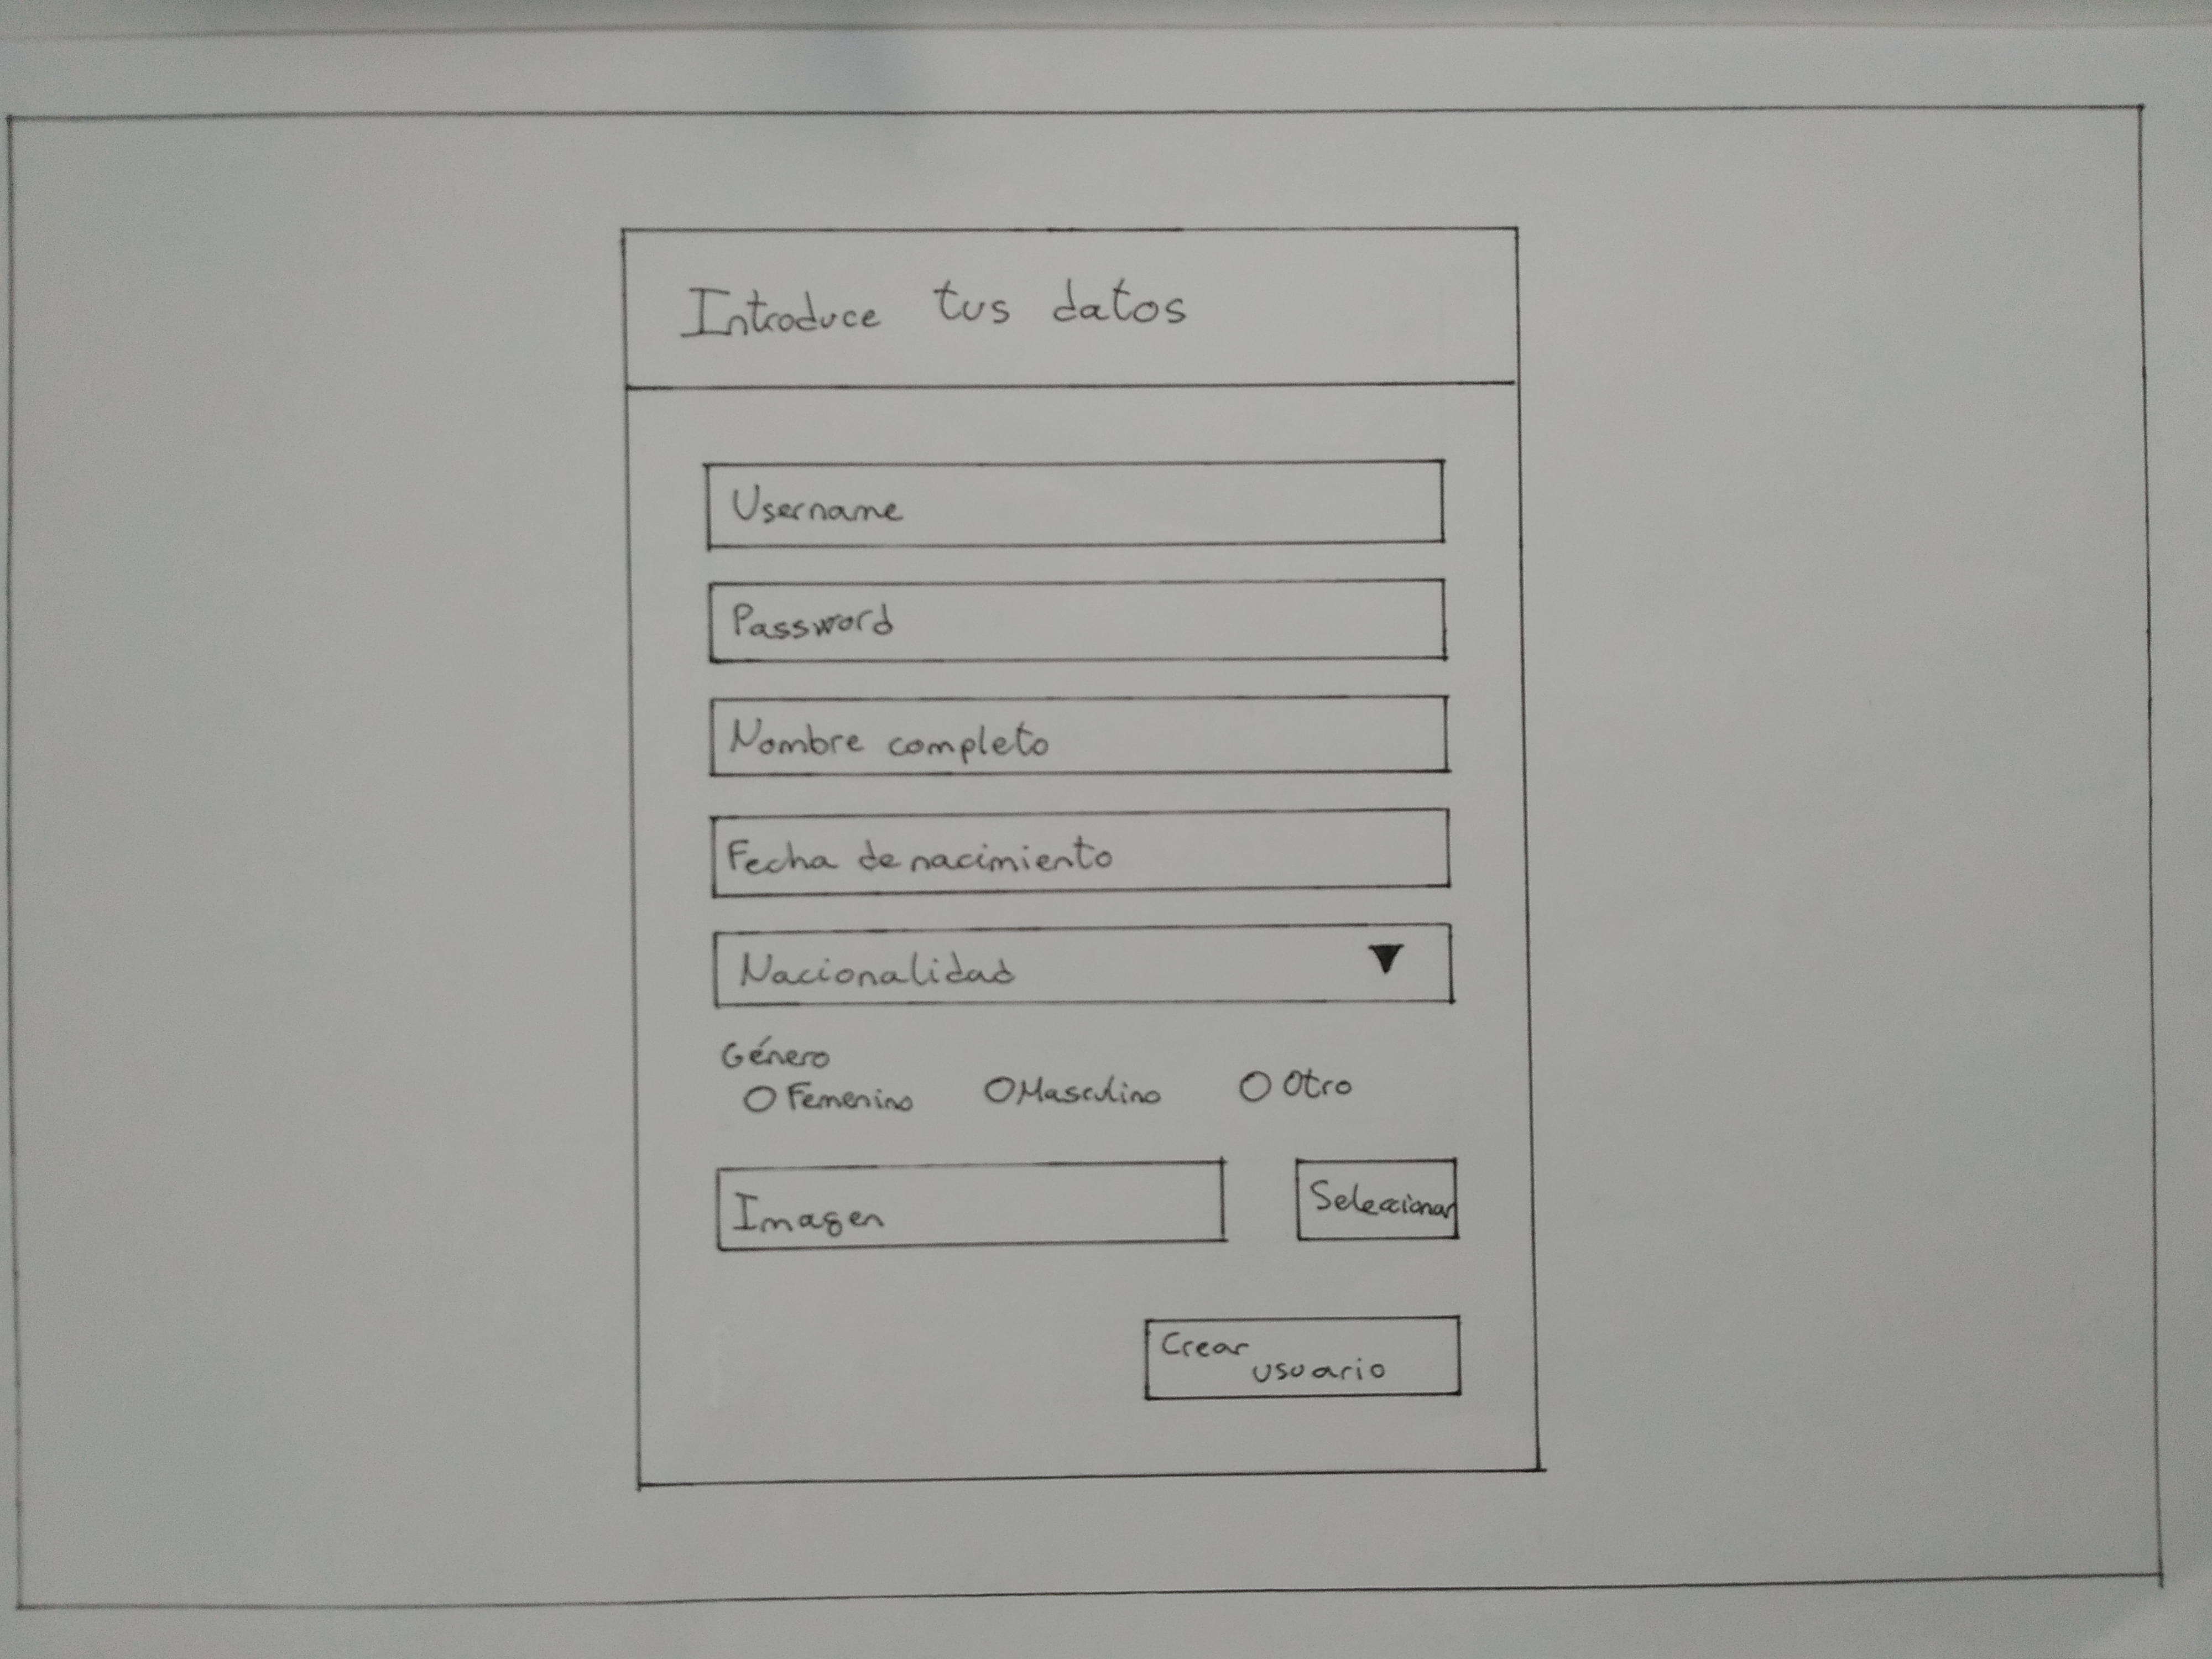 Introduce tus datos
Username
Password
Nombre completo
Fecha de nacimiento
Nacionalidad
Género
Femenino Masculino Otro
Imagen Seleccionar
Crear
usuario